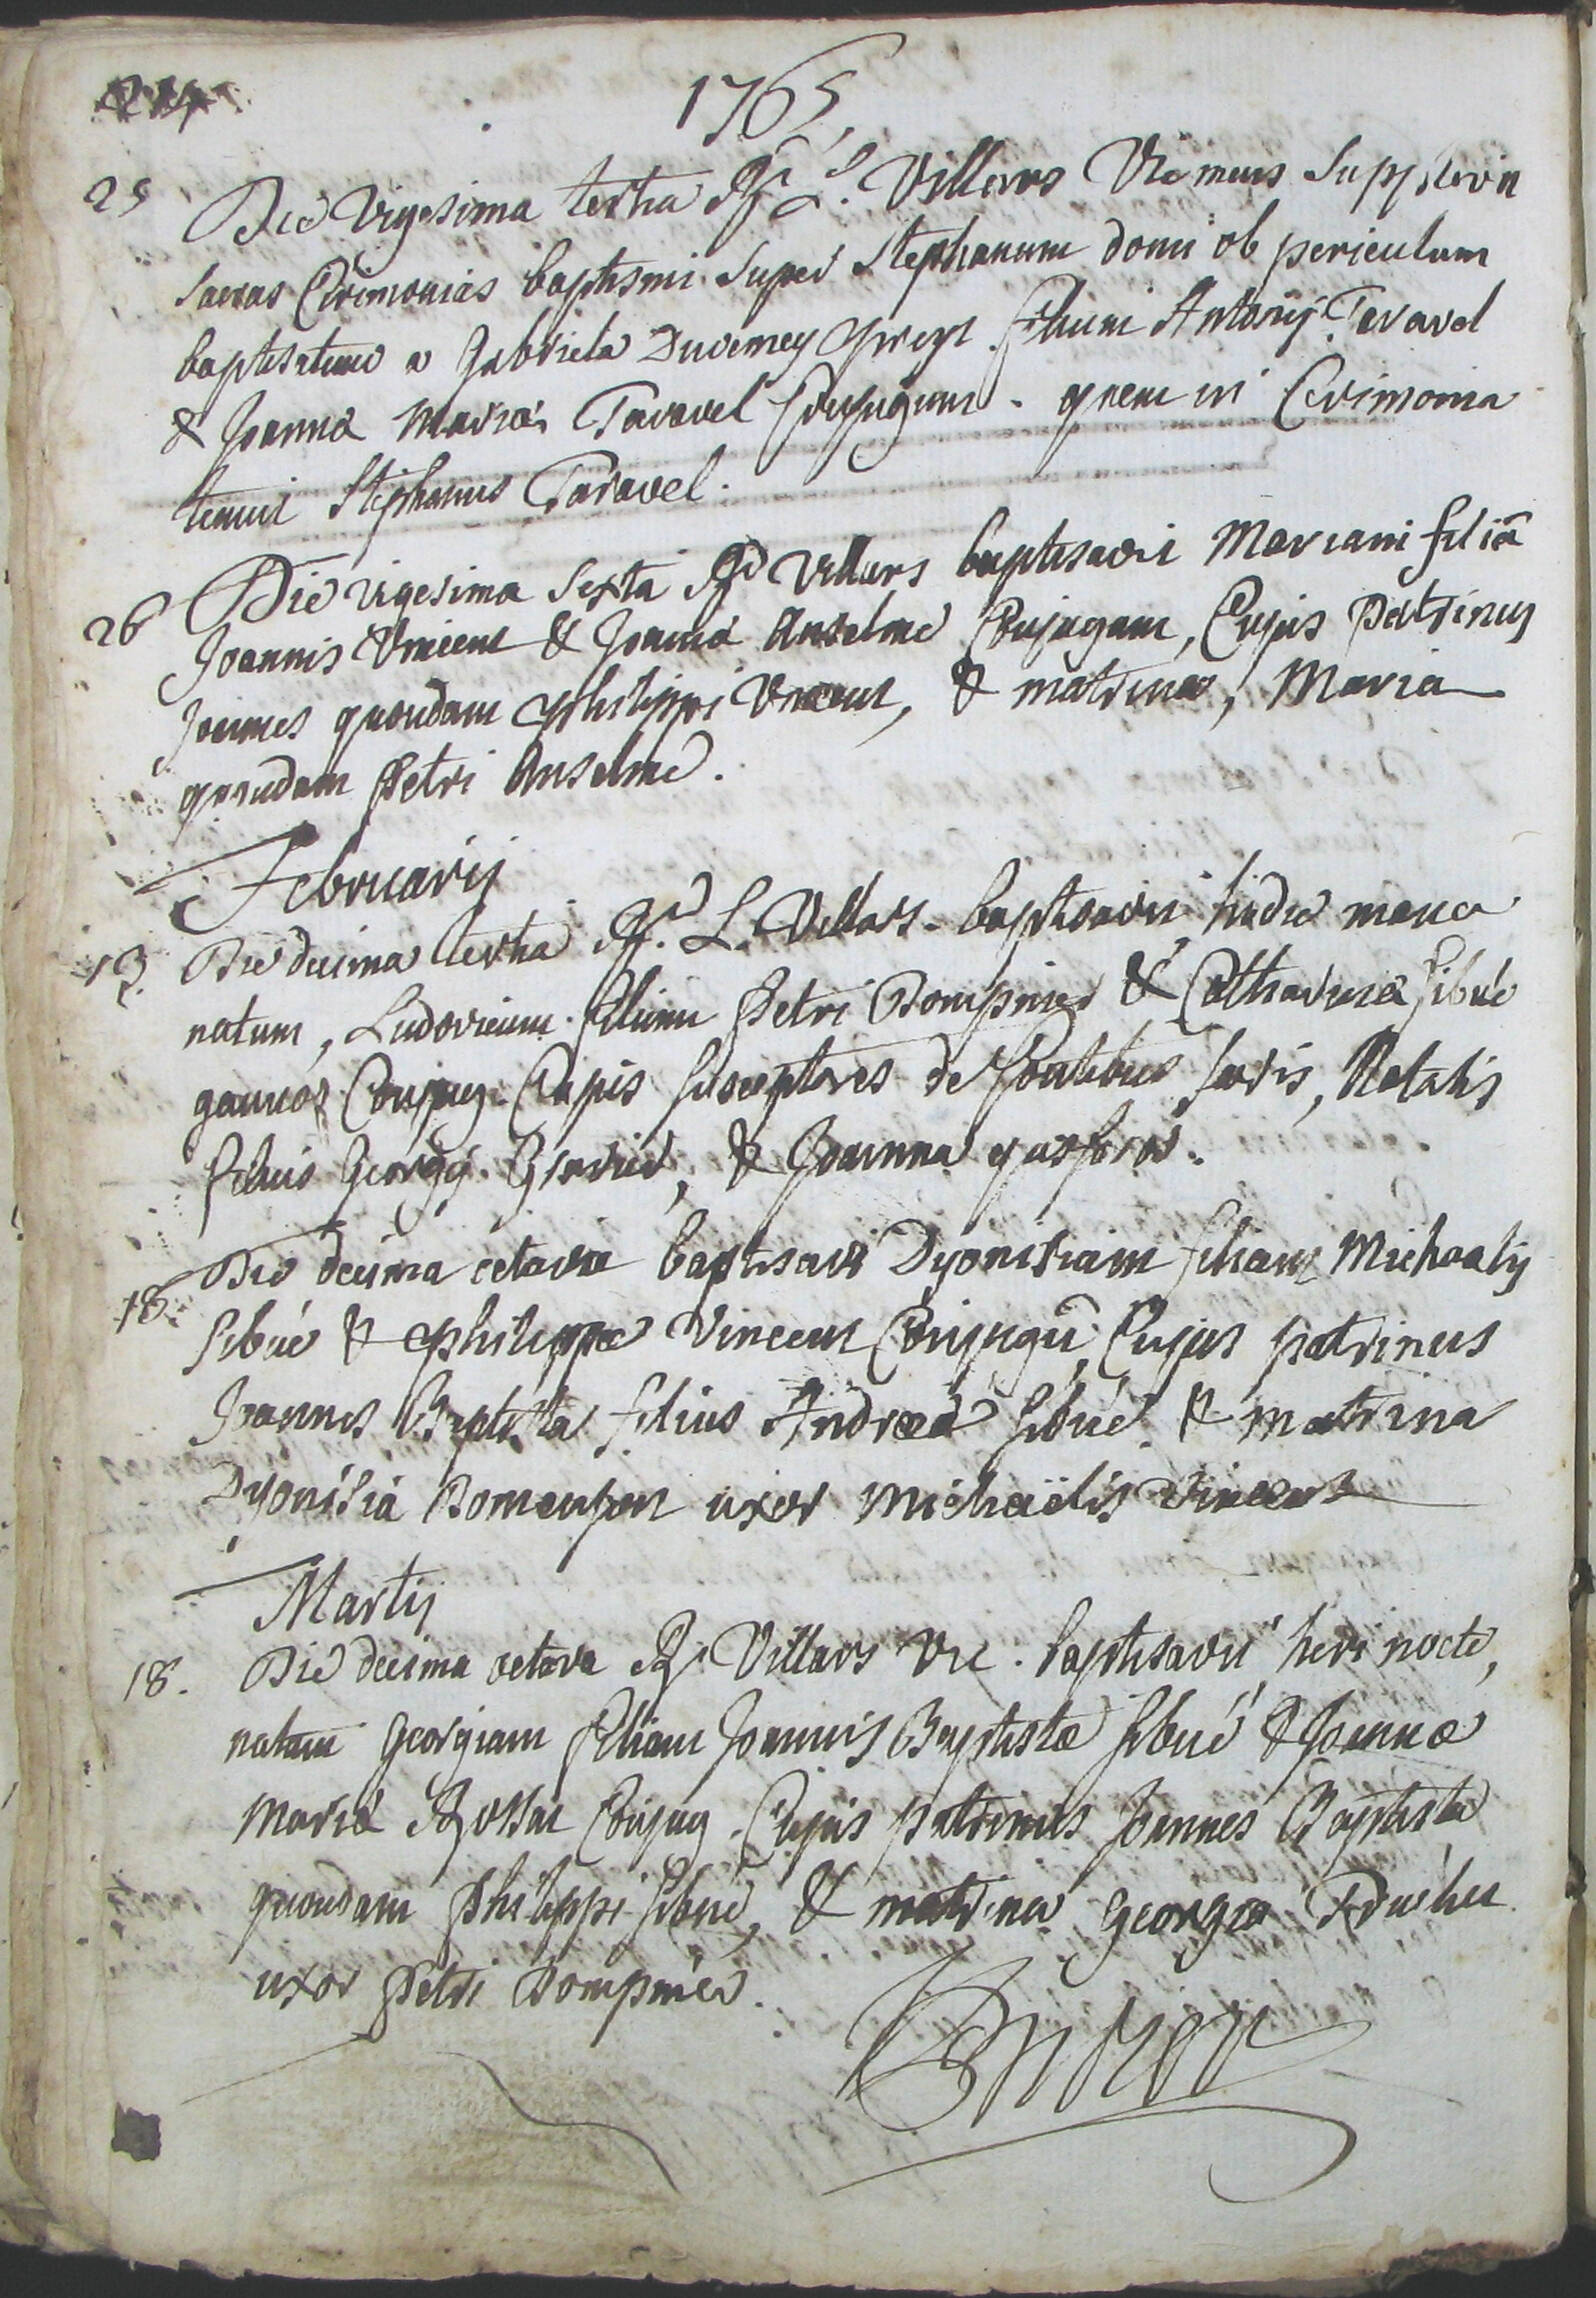 1765
25 Die Vigesima tertia Rd L. Villars Vic meus Supplevit
sacras Cerimonias baptismi super Stephanum domi ob periculum
baptisatum a Gabriela Duverney filium Antonij Taravel
& Joannæ Mariæ Taravel Conjugum. quem in Cerimonia
tenuit Stephanus Taravel.
26 Die vigesima sexta Rd Villars baptisavit Mariam filiā
Joannis Vincent & Joannæ Anselme Conjugum, Cujus Patrinus
Joannes quondam philippi Vincent, & matrina, Maria
quondam Petri Anselme.
Februarij
13. Die decima tertia Rd. L. Villars baptisavit hodie mane
natum, Ludovicum filium Petri Dompnier & Catharinæ sibué
Conjug. Cujus susceptores de fontibus sacris, Natalis
filius Georgij & Joanna
18. Die decima octava baptisavi Dyonisiam filiam Michaelis
sibué & philippæ Vincent Conjugū, Cujus patrinus
Joannes Baptista filius Andreæ sibué & matrina
Dyonisia uxor Michaëlis Vincent
Martij
18. Die decima octava Rd Villars Vic. baptisavit heri nocte,
natam Georgiam filiam Joannis Baptistæ sibué & Joannæ
Mariæ Conjug. Cujus patrinus Joannes Baptista
quondam Philippi sibué, & matrina Georgia
uxor Petri Dompnier.